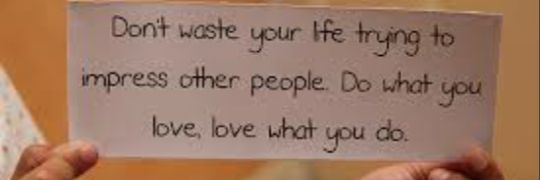 Don't waste your life trying to
impress other people. Do what you
love, love what you do.